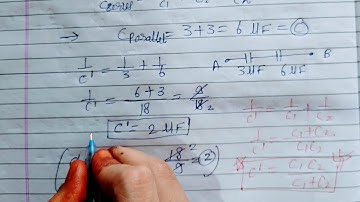 → C parallel = 3+3 = 6 µF = C
1/C' = 1/3 + 1/6
A B
3µF 6µF
1/C' = 6+3/18 = 9/18 2
C' = 2 µF
1/C' = 1/C1 + 1/C2
1/C' = C1+C2/C1C2
C' = C1C2/C1+C2
18/9 2 = 2